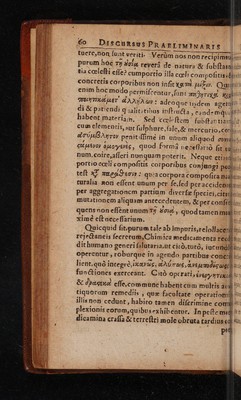 60 DISCURSUS PRAELIMINARIS
tuere, non sunt veriti. Verùm nos non recipimus
purum hoc τῇ οὐσίᾳ reverà de natura & substantia
cœlesti esse? cum portio illa cœli compositis &
concretis corporibus non insit
enim hoc modo permiscentur, sint
ἀλλήλων: adeoque iisdem agendi
& patiendi qualitatibus instructa,
habent materiam. Sed cœlestem substantiam
cum elementis, ut sulphure, sale, & mercurio, cer-
penitissime in unum aliquod
quod formâ
num, coire, asseri nunquam poterit. Neque etiam
portio cœli compositis corporibus conjungi po-
test κτ παράθεσιν: quia corpora composita na-
turalia non essent unum per se, sed per accidens,
per aggregationem partium diversæ speciei, citra
mutationem aliquam antecedentem, & per conse-
quens non essent unum τῇ οὐσίᾳ, quod tamen ma-
ximè est necessarium.
Quicquid sit, purum tale ab impuris, re
rejectaneis secretum, Chimica medicamenta red-
dit humano generi salutaria, ut citò, tutò, jucundè
operentur, roburque in agendo partibus conci-
lient, quò integrè,
functiones exerceant. Citò operari,
& esse, commune habent cum multis an-
tiquorum remediis, quæ facultate operationis
illis non cedunt, habito tamen discrimine com-
plexionis eorum, quibus exhibentur. In peste me-
dicamina crassa & terrestri mole obruta tardius